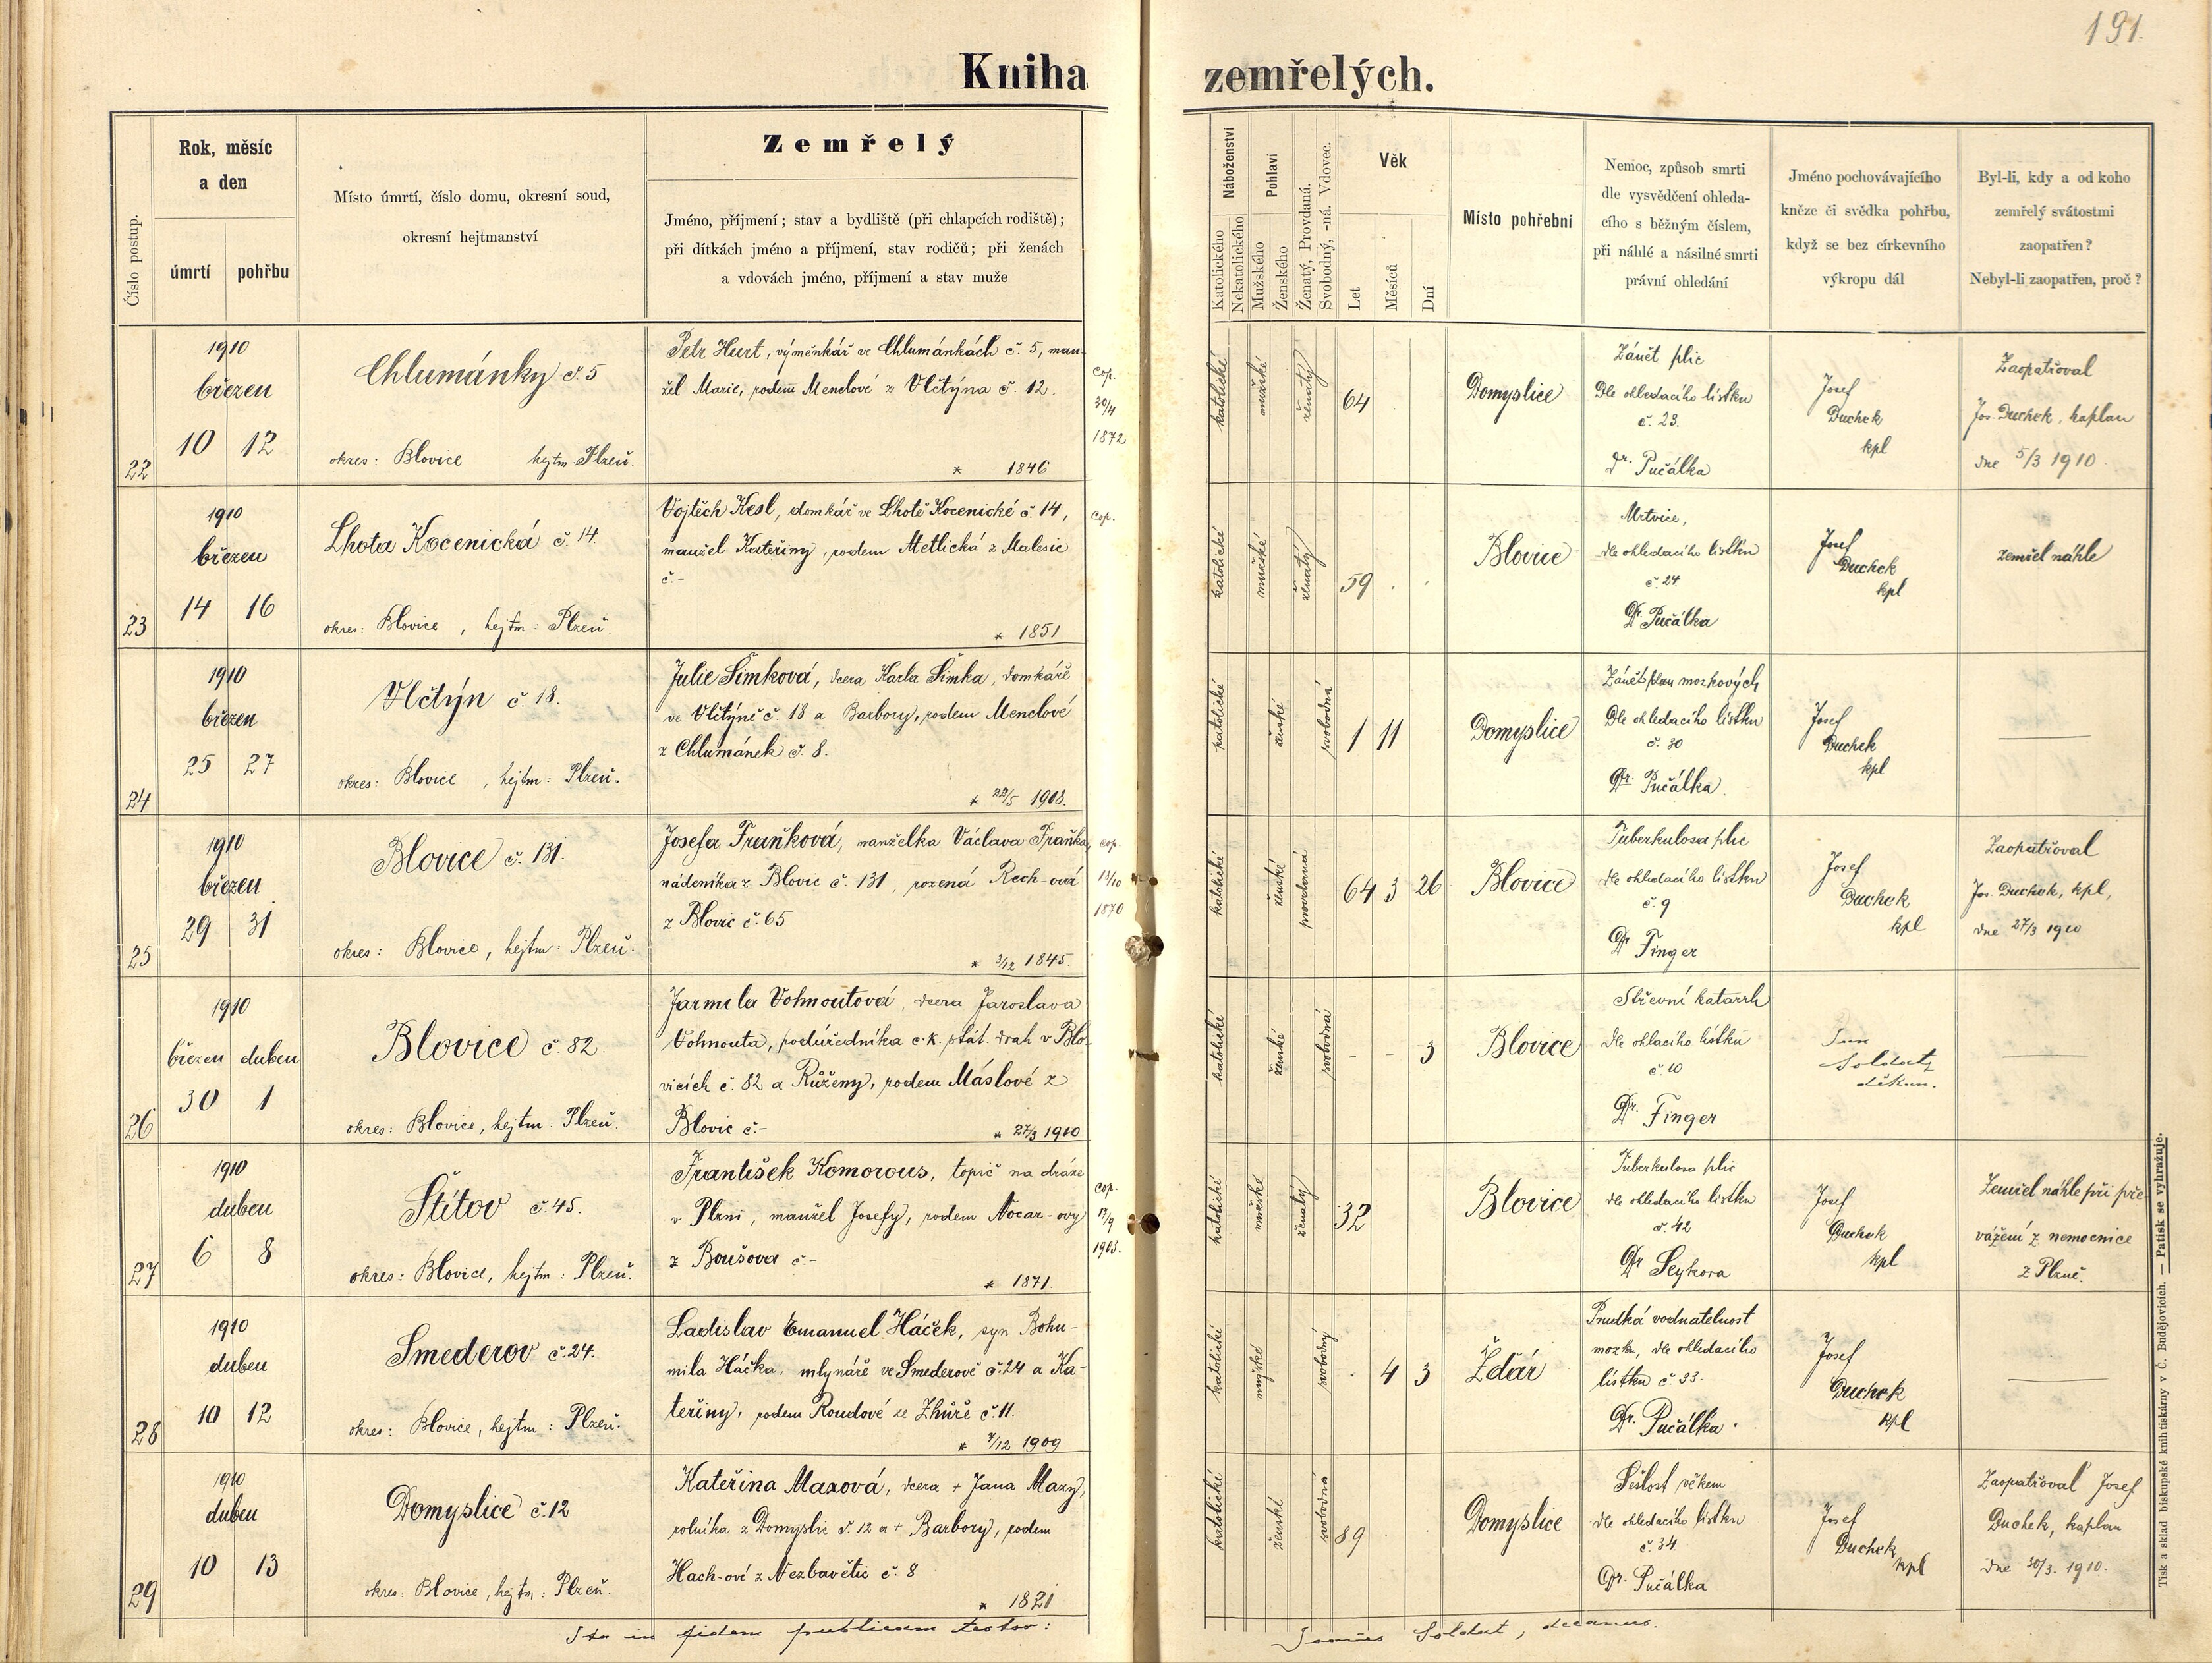 191.
Kniha zemřelých.
Číslo postup.
Rok, měsíc
a den
úmrtí
pohřbu
Místo úmrtí, číslo domu, okresní soud,
okresní hejtmanství
Zemřelý
Jméno, příjmení; stav a bydliště (při chlapcích rodiště);
při dítkách jméno a příjmení, stav rodičů; při ženách
a vdovách jméno, příjmení a stav muže
Náboženství
Katolického
Nekatolického
Pohlaví
Mužského
Ženského
Ženatý, Provdaná.
Svobodný, -ná. Vdovec.
Věk
Let
Měsíců
Dní
Místo pohřební
Nemoc, způsob smrti
dle vysvědčení ohleda-
cího s běžným číslem,
při náhlé a násilné smrti
právní ohledání
Jméno pochovávajícího
kněze či svědka pohřbu,
když se bez církevního
výkropu dál
Byl-li, kdy a od koho
zemřelý svátostmi
zaopatřen?
Nebyl-li zaopatřen, proč?
22
1910
březen
10 12
Chlumánky č. 5
okres: Blovice hejtm: Plzeň.
Petr Hurt, výměnkář ve Chlumánkách č. 5, man-
žel Marie, rodem Menclové z Vlčtýna č. 12.
* 1846
cop.
30/4
1872
katolické
mužské
ženatý
64
Domyslice
Zánět plic
Dle ohledacího lístku
č. 23.
Dr. Pučálka
Josef
Duchek
kpl
Zaopatřoval
Jos. Duchek, kaplan
dne 5/3 1910.
23
1910
březen
14 16
Lhota Kocenická č. 14
okres: Blovice, hejtm: Plzeň.
Vojtěch Kesl, domkář ve Lhotě Kocenické č. 14,
manžel Kateřiny, rodem Metlická z Malesic
č.-
* 1851
cop.
katolické
mužské
ženatý
59
Blovice
Mrtvice,
dle ohledacího lístku
č. 24.
Dr. Pučálka
Josef
Duchek
kpl
zemřel náhle
24
1910
březen
25 27
Vlčtýn č. 18.
okres: Blovice, hejtm: Plzeň.
Julie Šimková, dcera Karla Šimka, domkáře
ve Vlčtýně č. 18 a Barbory, rodem Menclové
z Chlumánek č. 8.
* 22/5 1908.
katolické
ženské
svobodná
1 11
Domyslice
Zánět plen mozkových
Dle ohledacího lístku
č. 30
Dr. Pučálka.
Josef
Duchek
kpl
25
1910
březen
29 31
Blovice č. 131.
okres: Blovice, hejtm: Plzeň.
Josefa Fraňková, manželka Václava Fraňka,
nádeníka z Blovic č. 131, rozená Rech-ová
z Blovic č. 65
* 3/12 1845.
cop.
1870
katolické
ženské
provdaná
64 3 26
Blovice
Tuberkulosa plic
dle ohledacího lístku
č. 9
Dr Finger
Josef
Duchek
kpl
Zaopatřoval
Jos. Duchek, kpl,
dne 27/3 1910
26
1910
březen duben
30 1
Blovice č. 82.
okres: Blovice, hejtm: Plzeň.
Jarmila Vohnoutová, dcera Jaroslava
Vohnouta, podúředníka c.k. stát. drah v Blo-
vicích č. 82 a Růženy, rodem Máslové z
Blovic č.-
* 27/3 1910
katolické
ženské
svobodná
- - 3
Blovice
Střevní katarrh
dle ohlacího lístku
č. 10
Dr. Finger
Soldat,
děkan.
27
1910
duben
6 8
Štítov č. 45.
okres: Blovice, hejtm: Plzeň.
František Komorous, topič na dráze
v Plzni, manžel Josefy, rodem Nocar-ovy
z Boušova č.-
* 1871.
cop.
1903.
katolické
mužské
ženatý
32
Blovice
Tuberkulosa plic
dle ohledacího lístku
č. 42
Dr Seykora
Josef
Duchek
kpl
Zemřel náhle při pře-
vážení z nemocnice
z Plzně.
28
1910
duben
10 12
Smederov č. 24.
okres: Blovice, hejtm: Plzeň.
Ladislav Emanuel Háček, syn Bohu-
mila Háčka, mlynáře ve Smederově č. 24 a Ka-
teřiny, rodem Roudové ze Zhůře č. 11.
* 7/12 1909
katolické
mužské
svobodný
4 3
Ždár
Prudká vodnatelnost
mozku, dle ohledacího
lístku č. 33.
Dr. Pučálka.
Josef
Duchek
kpl
29
1910
duben
10 13
Domyslice č. 12
okres: Blovice, hejtm: Plzeň.
Kateřina Maxová, dcera + Jana Maxy,
rolníka z Domyslic č. 12 a + Barbory, rodem
Hach-ové z Nezbavětic č. 8
* 1821
katolické
ženské
svobodná
89
Domyslice
Sešlost věkem
dle ohledacího lístku
č. 34.
Dr. Pučálka
Josef
Duchek,
kpl
Zaopatřoval Josef
Duchek, kaplan
dne 30/3. 1910.
Ita in fidem publicam testor:
Joannes Soldat, decanus.
Tisk a sklad biskupské knihtiskárny v Č. Budějovicích. — Patisk se vyhražuje.